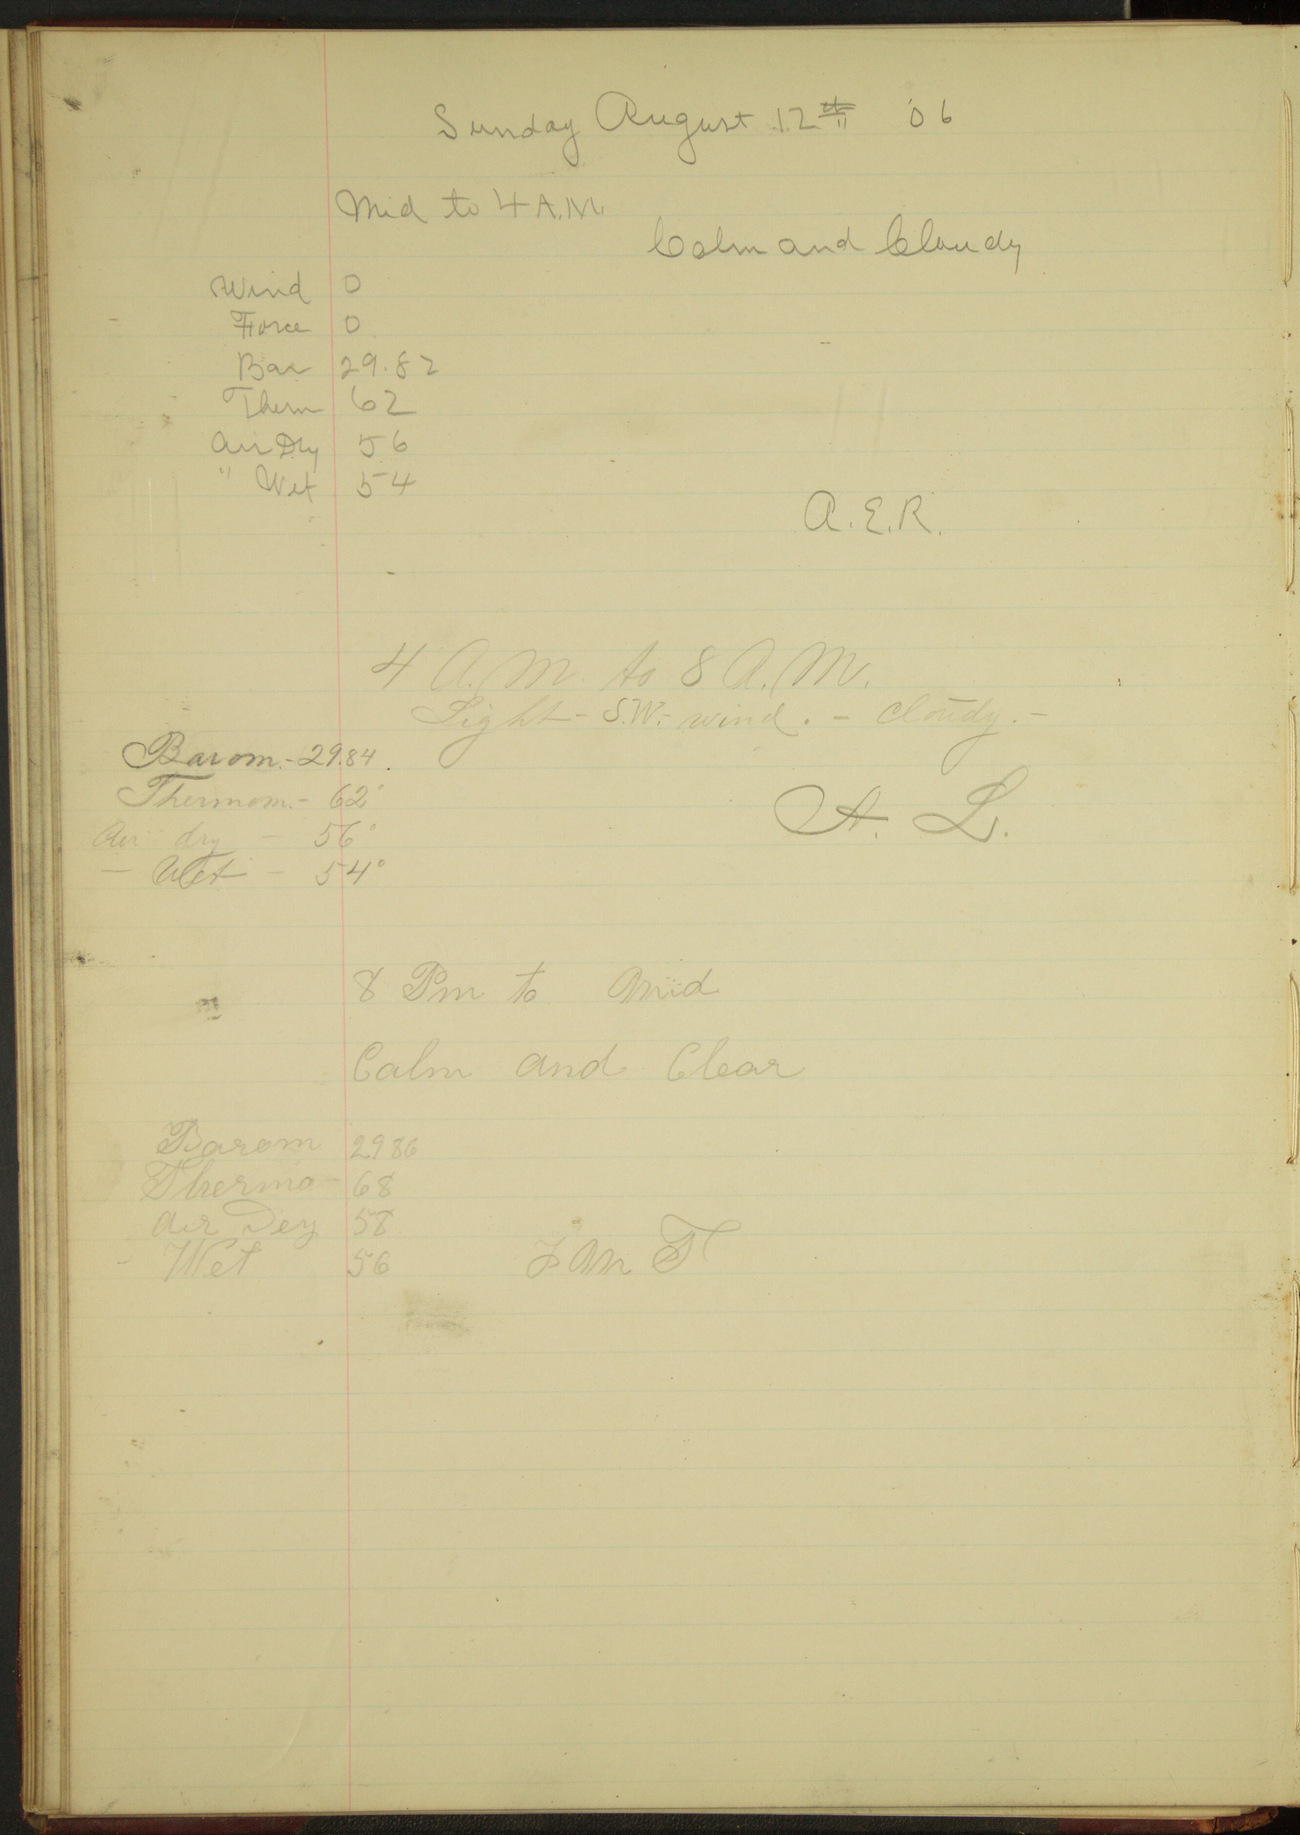 Sunday August 12th '06
Mid to 4 A.M.
Calm and Cloudy
Wind 0
Force 0
Bar 29.82
Therm 62
Air Dry 56
" Wet 54
A.E.R.
4 A.M. to 8 A.M.
Light - S.W. - wind. - cloudy. -
Barom. - 29.84.
Thermom. - 62°
Air dry - 56°
- Wet - 54°
A. L.
8 Pm to Mid
Calm and Clear
Barom 2986
Thermo - 68
Air Dry 58
- Wet 56